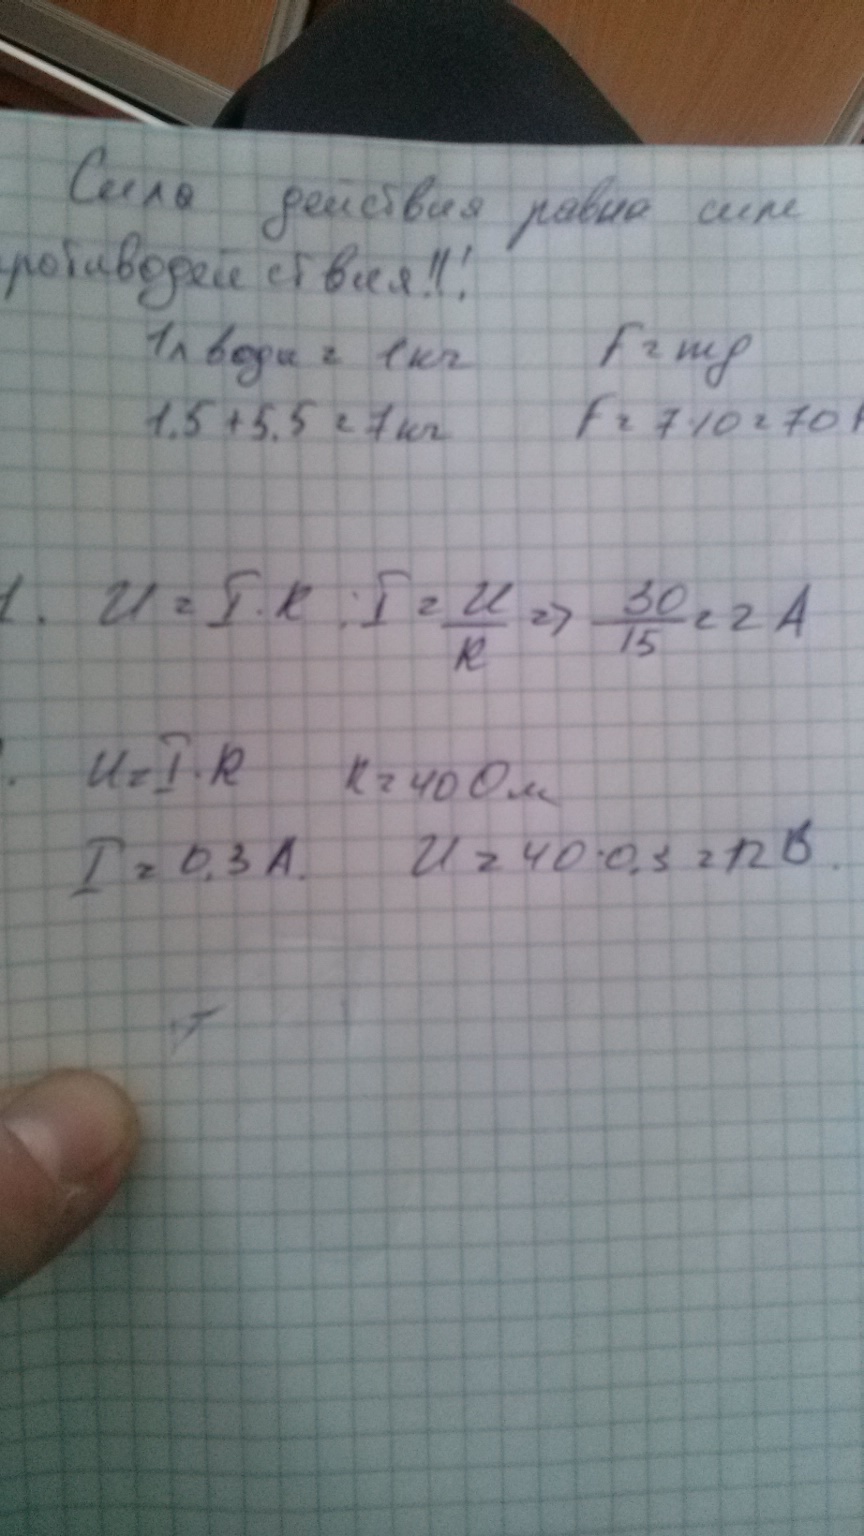 Сила действия равна силе
противодействия!!!
1л воды = 1кг F=mg
1.5+5.5=7кг F=7·10=70
1. U=I·R : I=U/R => 30/15=2 A
U=I·R R=40 Ом
I=0.3 A. U=40·0.3=12 В.